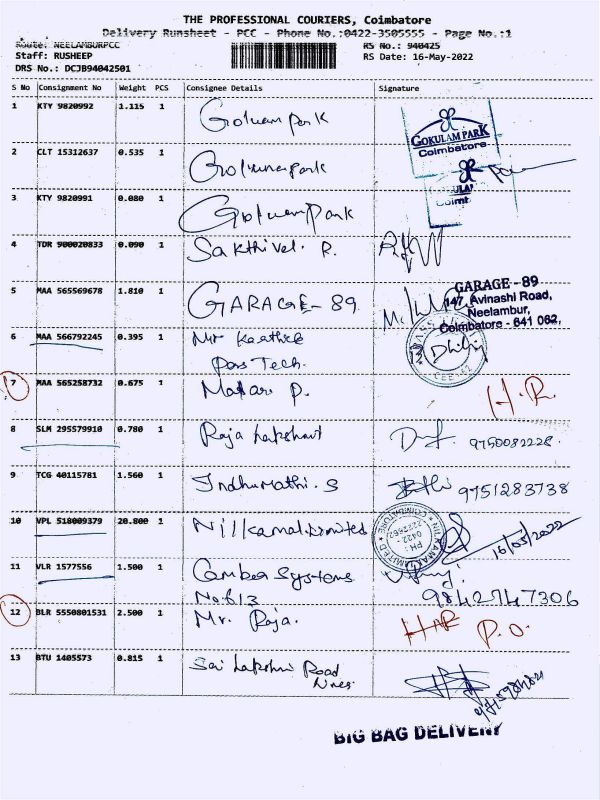 THE PROFESSIONAL COURIERS, Coimbatore
Delivery Runsheet - PCC - Phone No.:0422-3505555 - Page No.:1
Route: NEELAMBURPCC RS No.: 940425
Staff: RUSHEEP RS Date: 16-May-2022
DRS No.: DCJB94042501
S No Consignment No Weight PCS Consignee Details Signature
1 KTY 9820992 1.115 1 Gokulam Park
GOKULAM PARK
Coimbatore
2 CLT 15312637 0.535 1
3 KTY 9820991 0.080 1 Gokulam Park
4 TDR 900020833 0.090 1 Sakthivel. R.
5 MAA 565569678 1.810 1 GARAGE - 89
GARAGE - 89
147, Avinashi Road,
Neelambur,
Coimbatore - 641 062.
6 MAA 566792245 0.395 1 Mr Karthick
Tech.
7 MAA 565258732 0.675 1 P. H.R.
8 SLM 295579910 0.780 1 Raja 9750082228
9 TCG 40115781 1.560 1 Indhumathi. S 9751283738
10 VPL 518009379 20.800 1 Nilkamal Limited 16/05/2022
11 VLR 1577556 1.500 1 Systems
No 613 9842747306
12 BLR 5550801531 2.500 1 Mr. Raja. P.O.
13 BTU 1405573 0.815 1 Sai Lakshmi Road
Lines
BIG BAG DELIVERY